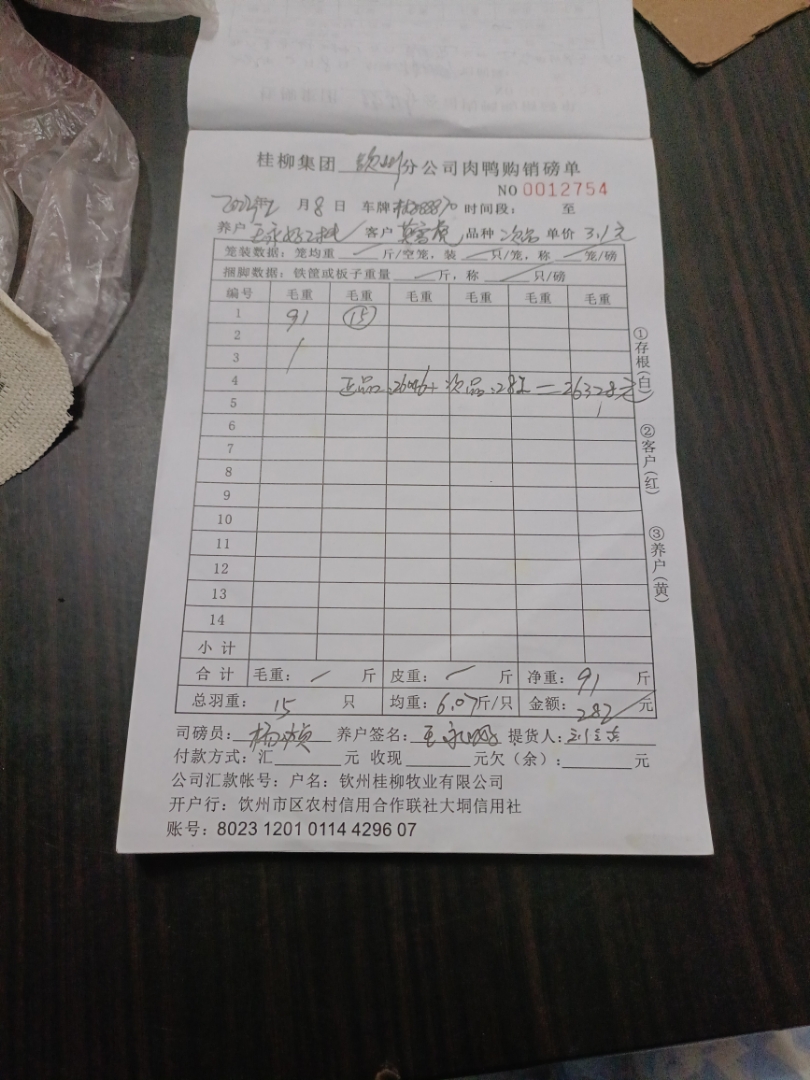 桂柳集团 钦州 分公司肉鸭购销磅单
NO 0012754
月 8 日 车牌 时间段： 至
养户 客户 品种 次品 单价 3.1元
笼装数据：笼均重 斤/空笼，装 只/笼，称 笼/磅
捆脚数据：铁筐或板子重量 斤，称 只/磅
编号 毛重 毛重 毛重 毛重 毛重 毛重
1 91 15
2
3
4 正品：26046+次品：282=26328元
5
6
7
8
9
10
11
12
13
14
小计
合计 毛重： 斤 皮重： 斤 净重：91 斤
总羽重：15 只 均重：6.07斤/只 金额：282 元
司磅员： 养户签名： 提货人：
付款方式：汇 元 收现 元欠（余）： 元
公司汇款帐号：户名：钦州桂柳牧业有限公司
开户行：钦州市区农村信用合作联社大垌信用社
账号：8023 1201 0114 4296 07
①存根（白）
②客户（红）
③养户（黄）